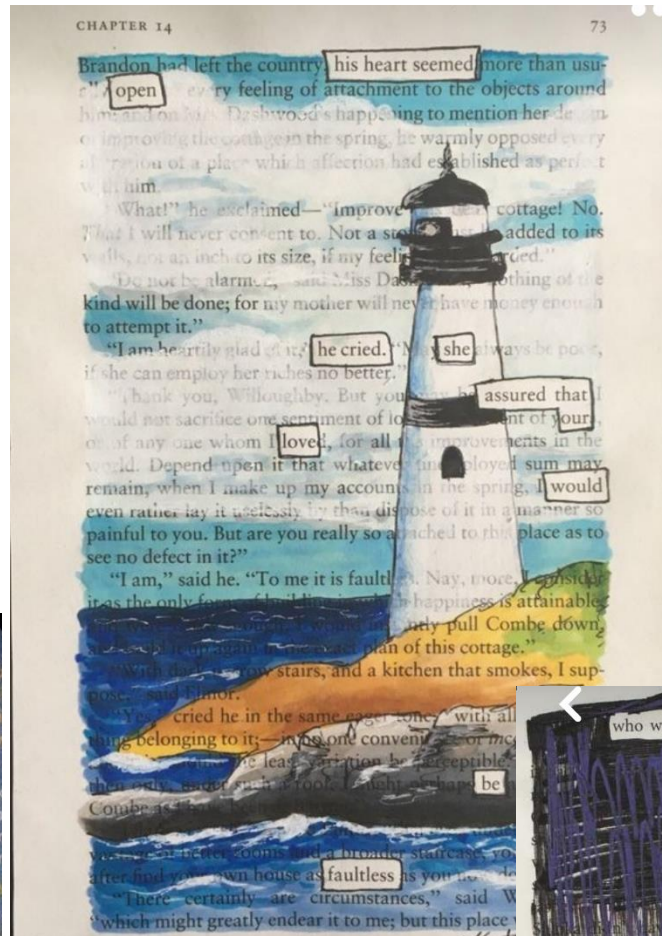 CHAPTER 14 73
Brandon had left the country, his heart seemed more than usu-
open every feeling of attachment to the objects around
him and on Mrs. Dashwood's happening to mention her
of improving the cottage in the spring, he warmly opposed every
of a place which affection had established as perfect
with him.
"What!" he exclaimed—"Improve cottage! No.
That I will never consent to. Not a added to its
walls, not an inch to its size, if my
"Do not be alarmed," said Miss nothing of the
kind will be done; for my mother will never have money enough
to attempt it."
"I am heartily glad of it," he cried. "May she always be poor,
if she can employ her riches no better."
"Thank you, Willoughby. But you may be assured that I
would not sacrifice one sentiment of of your,
or of any one whom I loved, for all the improvements in the
world. Depend upon it that whatever sum may
remain, when I make up my accounts in the spring, I would
even rather lay it uselessly by than dispose of it in a manner so
painful to you. But are you really so attached to this place as to
see no defect in it?"
"I am," said he. "To me it is faultless. Nay, more, I consider
it as the only form of building in which happiness is attainable,
instantly pull Combe down,
plan of this cottage."
"With dark narrow stairs, and a kitchen that smokes, I sup-
pose," said Elinor.
"Yes," cried he in the same eager tone, "with all
thing belonging to it;—in no one
the least variation be perceptible.
then only, under such a roof, I might perhaps be
Combe as
of better rooms and a broader staircase,
after find your own house as faultless as you now do
"There certainly are circumstances," said W
"which might greatly endear it to me; but this place
who w